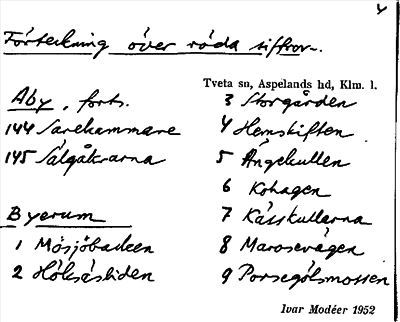 4
Förteckning över röda siffror.
Tveta sn, Aspelands hd, Klm. l.
Åby, forts.
144 Sarekammare
145 Sälgåkrarna
Byerum
1 Mösjöbacken
2 Hökåsliden
3 Storgården
4 Hemskiften
5 Ängekullen
6 Kohagen
7 Kässkullarna
8 Marosevägen
9 Porsegölsmossen
Ivar Modéer 1952